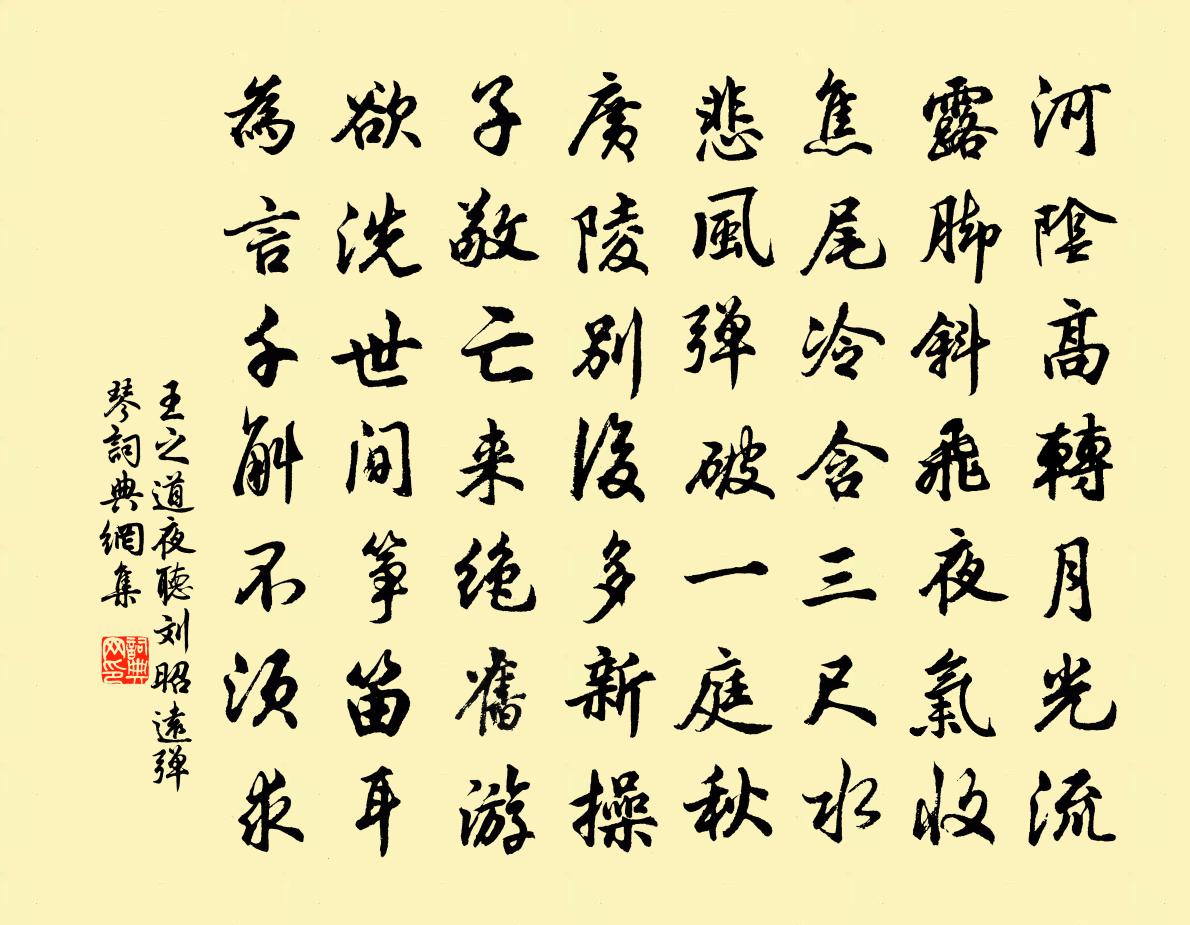 河陰高轉月光流
露脚斜飛夜氣收
焦尾冷含三尺水
悲風弾破一庭秋
廣陵别後多新操
子敬亡来絶舊游
欲洗世间筝笛耳
為言千斛不須求
王之道夜聽刘昭遠弾
琴詞典網集
詞典
网印